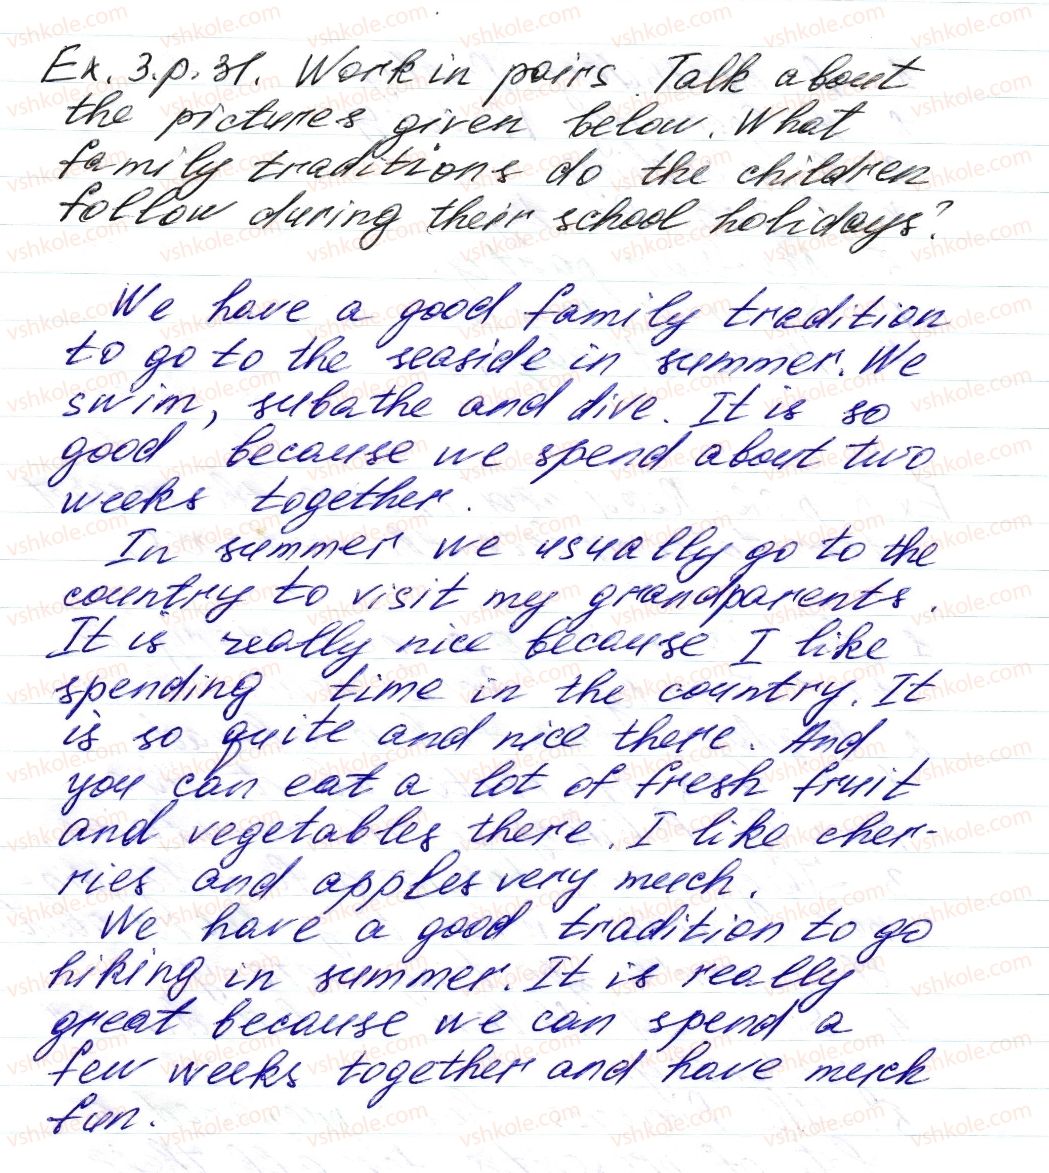 Ex. 3.p.31. Work in pairs. Talk about
the pictures given below. What
family traditions do the children
follow during their school holidays?
We have a good family tradition
to go to the seaside in summer. We
swim, subathe and dive. It is so
good because we spend about two
weeks together.
In summer we usually go to the
country to visit my grandparents.
It is really nice because I like
spending time in the country. It
is so quite and nice there. And
you can eat a lot of fresh fruit
and vegetables there. I like cher-
ries and apples very much.
We have a good tradition to go
hiking in summer. It is really
great because we can spend a
few weeks together and have much
fun.